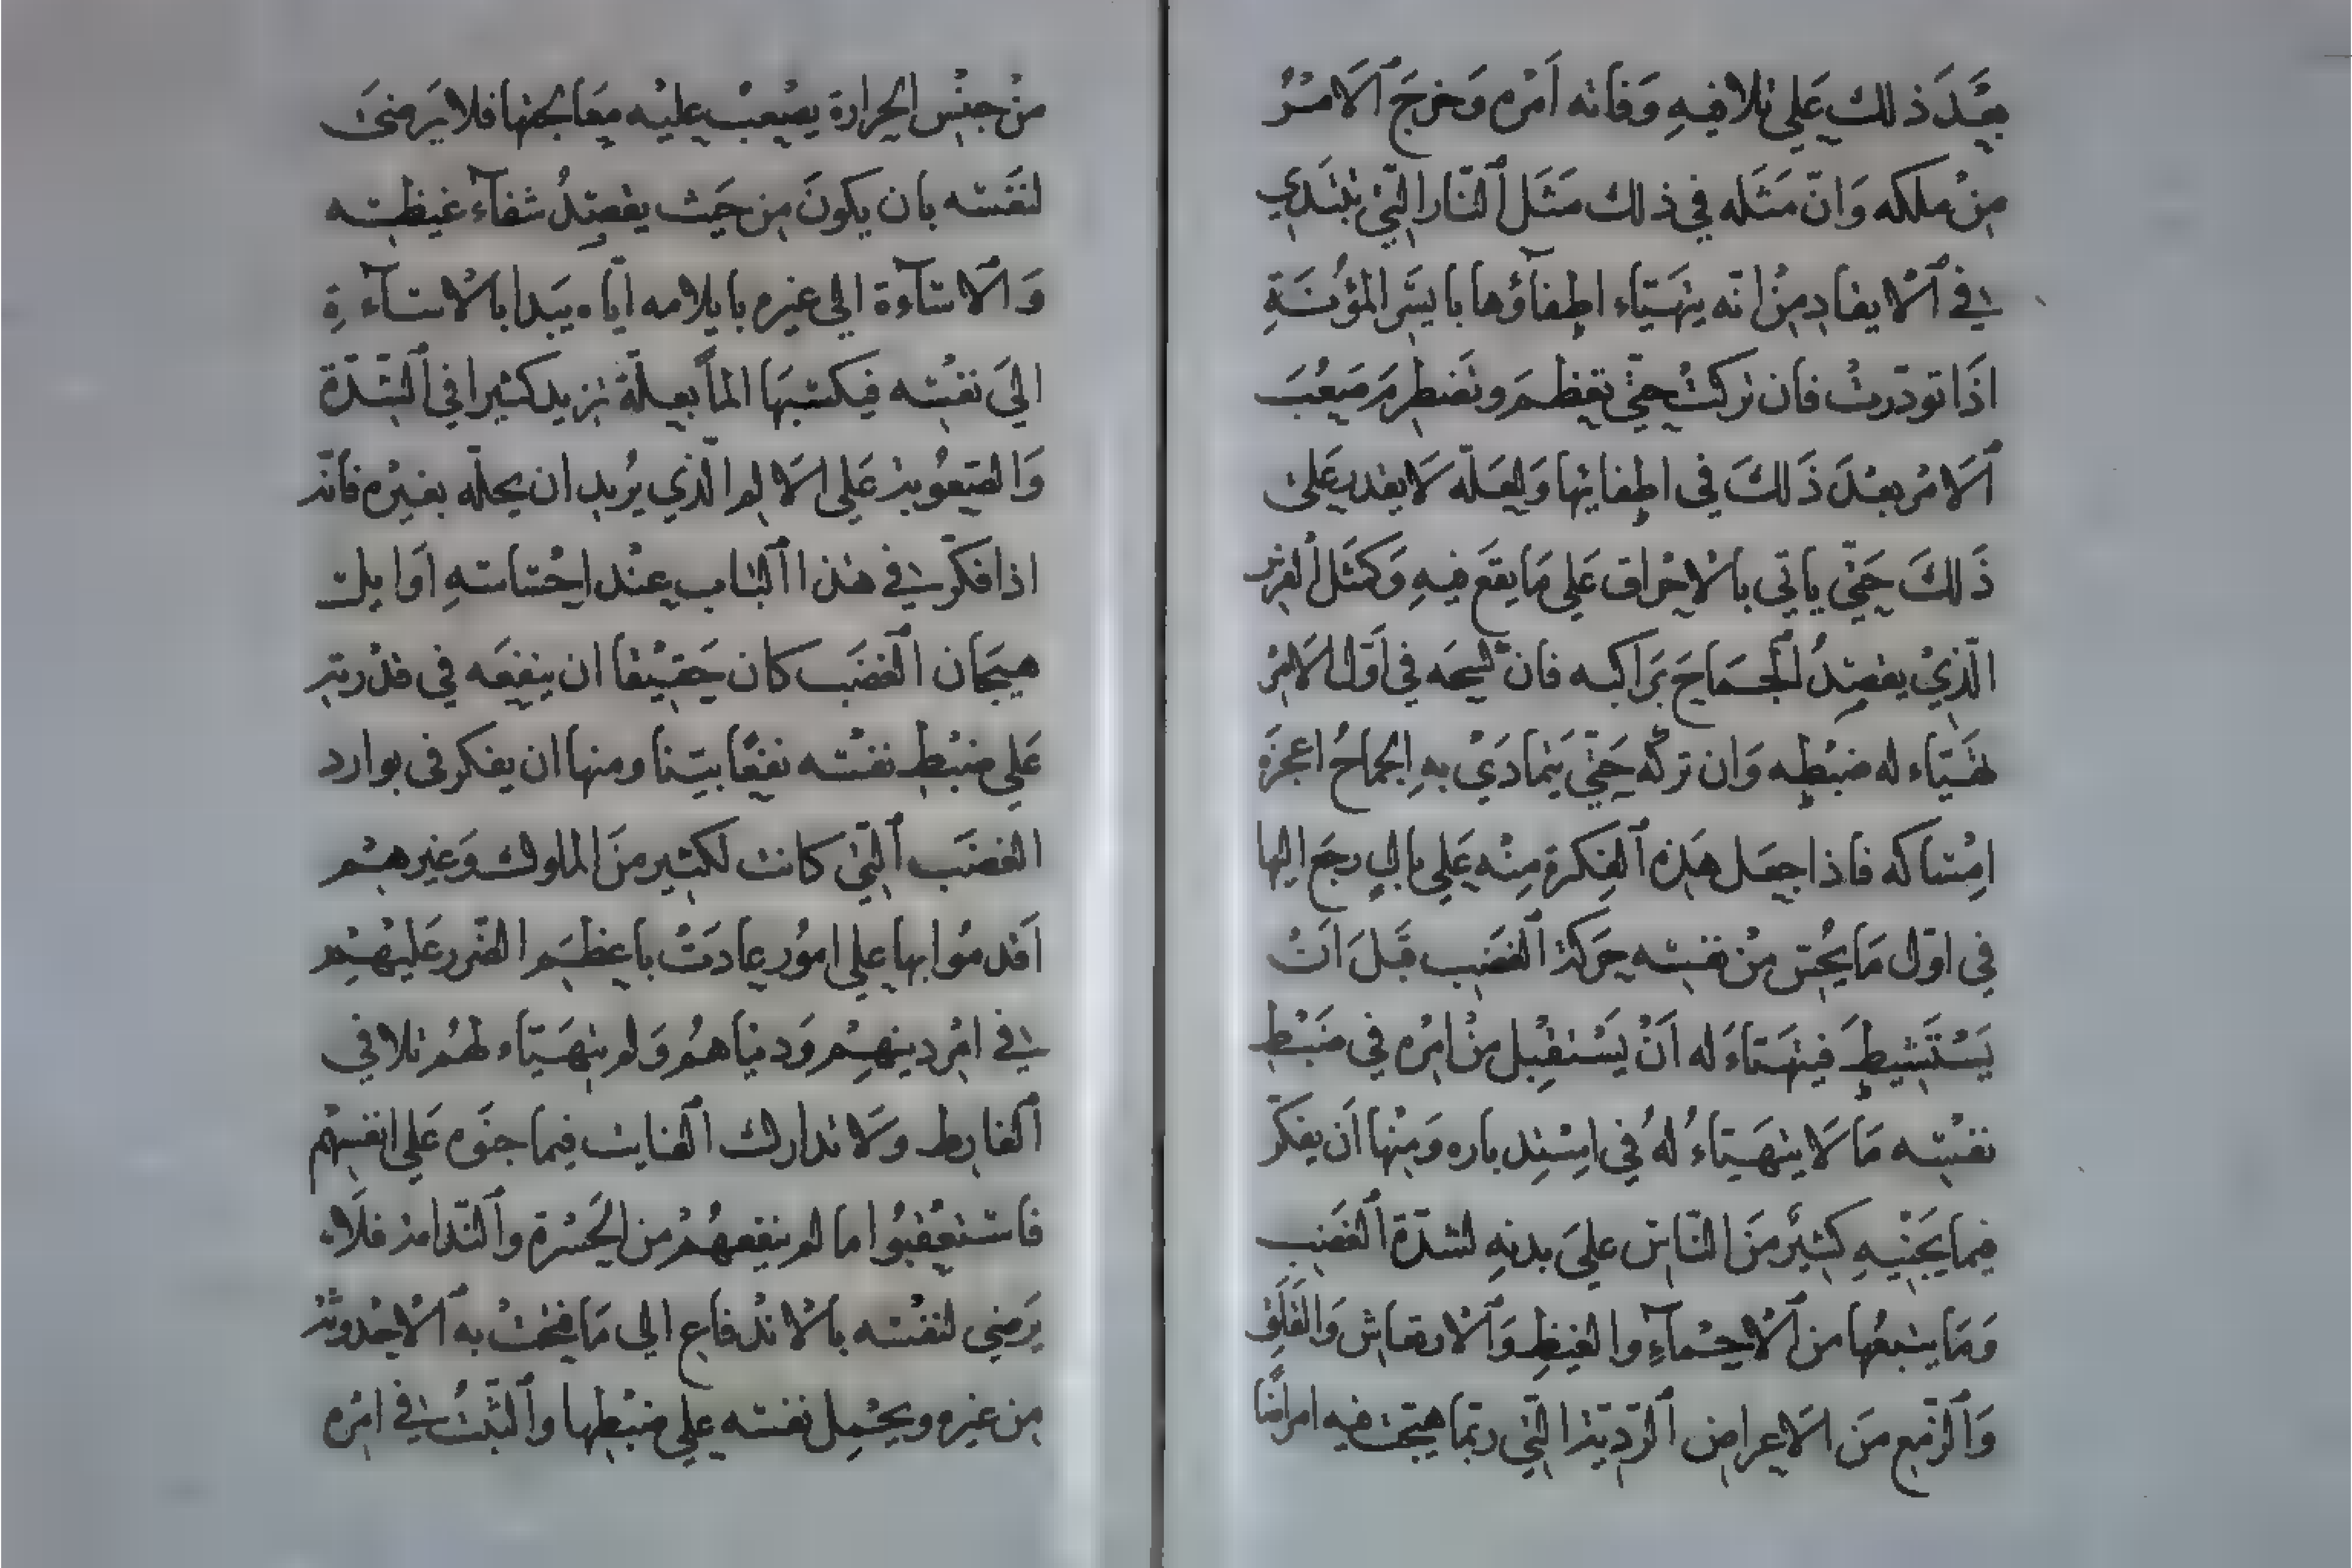 بَعْدَ ذلك عَلى تلافيهِ وَفاته اَمْره وَخرجَ اَلامْرُ
مِنْ ملكه وَانّ مَثَله في ذلك مَثَل اَلنّار الّتي تبْتَدي
في اَلايقاد مِنْ انّه يتهَيّاء اطفآؤها بايسَر المؤُنَةِ
اذَا تودّرتْ فان تركتْ حتّي تعظمَ وتَضطرمَ صَعُبَ
اَلامْر بعْدَ ذَلكَ في اطفايها وَلعَلّه لَايقدر عَلى
ذَلكَ حَتّي ياتي بالاحْراق عَلي مَايقَع فيهِ وَكمَثَل الفرَس
الّذيْ يقصِدُ الجمَاحَ بَراكبه فان كبحَه في اَوّل الَامْر
تهَيّاء له ضبْطه وَان تركْه حَتّي يَتمادَيْ بهِ الجماحُ اعجزَه
امْساكه فاذا جعَل هَذه اَلفِكرة مِنْه عَلي بالٍ رجَع اليها
في اوّل مَايحُسّ مِنْ نفسه حَركة اَلغضَب قَبلَ اَنْ
يَسْتَشيطَ فيتهَيّاءَ له اَنْ يَسْتقْبل مِنْ امْره في ضَبْط
نفسْه مَا لَا يتهَيّاءُ لهُ في اسْتِدباره وَمِنْها اَن يفكّر
فيما يَجْنيهِ كثيْرٌ مَنَ النّاس عَليَ بدنهِ لشدّة اَلغَضب
وَمَا يتبعُها من اَلاحْتمآءِ والغيظِ وَاَلارتعاش وَالقَلَقِ
وَاَلزّمَع مَنَ اَلاعراض اَلرّديّة الّتي ربّما هيّجت فيه امراضًا
منْ جنْس الحرارة يصْعبْ عليْه مَعَالجتها فلا يَرضيَ
لنفَسْه بان يكونَ مِن حَيث يقصِدُ شفآء غيظه
وَاَلاسآءة الي غيره بايلامه ايّاه يبَدا بالاسآءةِ
اليَ نفسْه فيكسبَها المَاً بعلّة تزيد كثيرا في اَلشّدّة
وَالصّعُوبة عَلي اَلالم الّذي يُريد ان يحلّه بغيْره فانّه
اذا فكّر في هَذا اَلبَاب عنْد احْتاسهِ اَوايل
هيَجان اَلغضَب كان حَقيْقا ان ينفعَه في قدْرته
عَلي ضبْط نفسْه نفعًا بيّنا ومنها ان يفكر في بوارد
الغضَب اَلّتيْ كانت لكثير منَ الملوك وَغيرهمْ
اَقدمُوا بها علي امُور عادَتْ باعظَم الضّرر عَليْهمْ
في امْر دينهمْ وَدنيَاهمُ وَلم يتهَيّاء لهمُ تلافي
اَلفارط وَلَا تدارك اَلفايت فيما جنَوه عَلي انفسهْم
فاستعْقبُوا ما لم ينفعهُمْ من الحَسْرة واَلنّدامة فلَا
يَرضي لنفسْه بالانْدفاع الي مَا قبحَتْ به اَلاحْدوثة
من غيره ويحْمل نفسه علي ضبْطها واَلتّثبّتُ في امْره